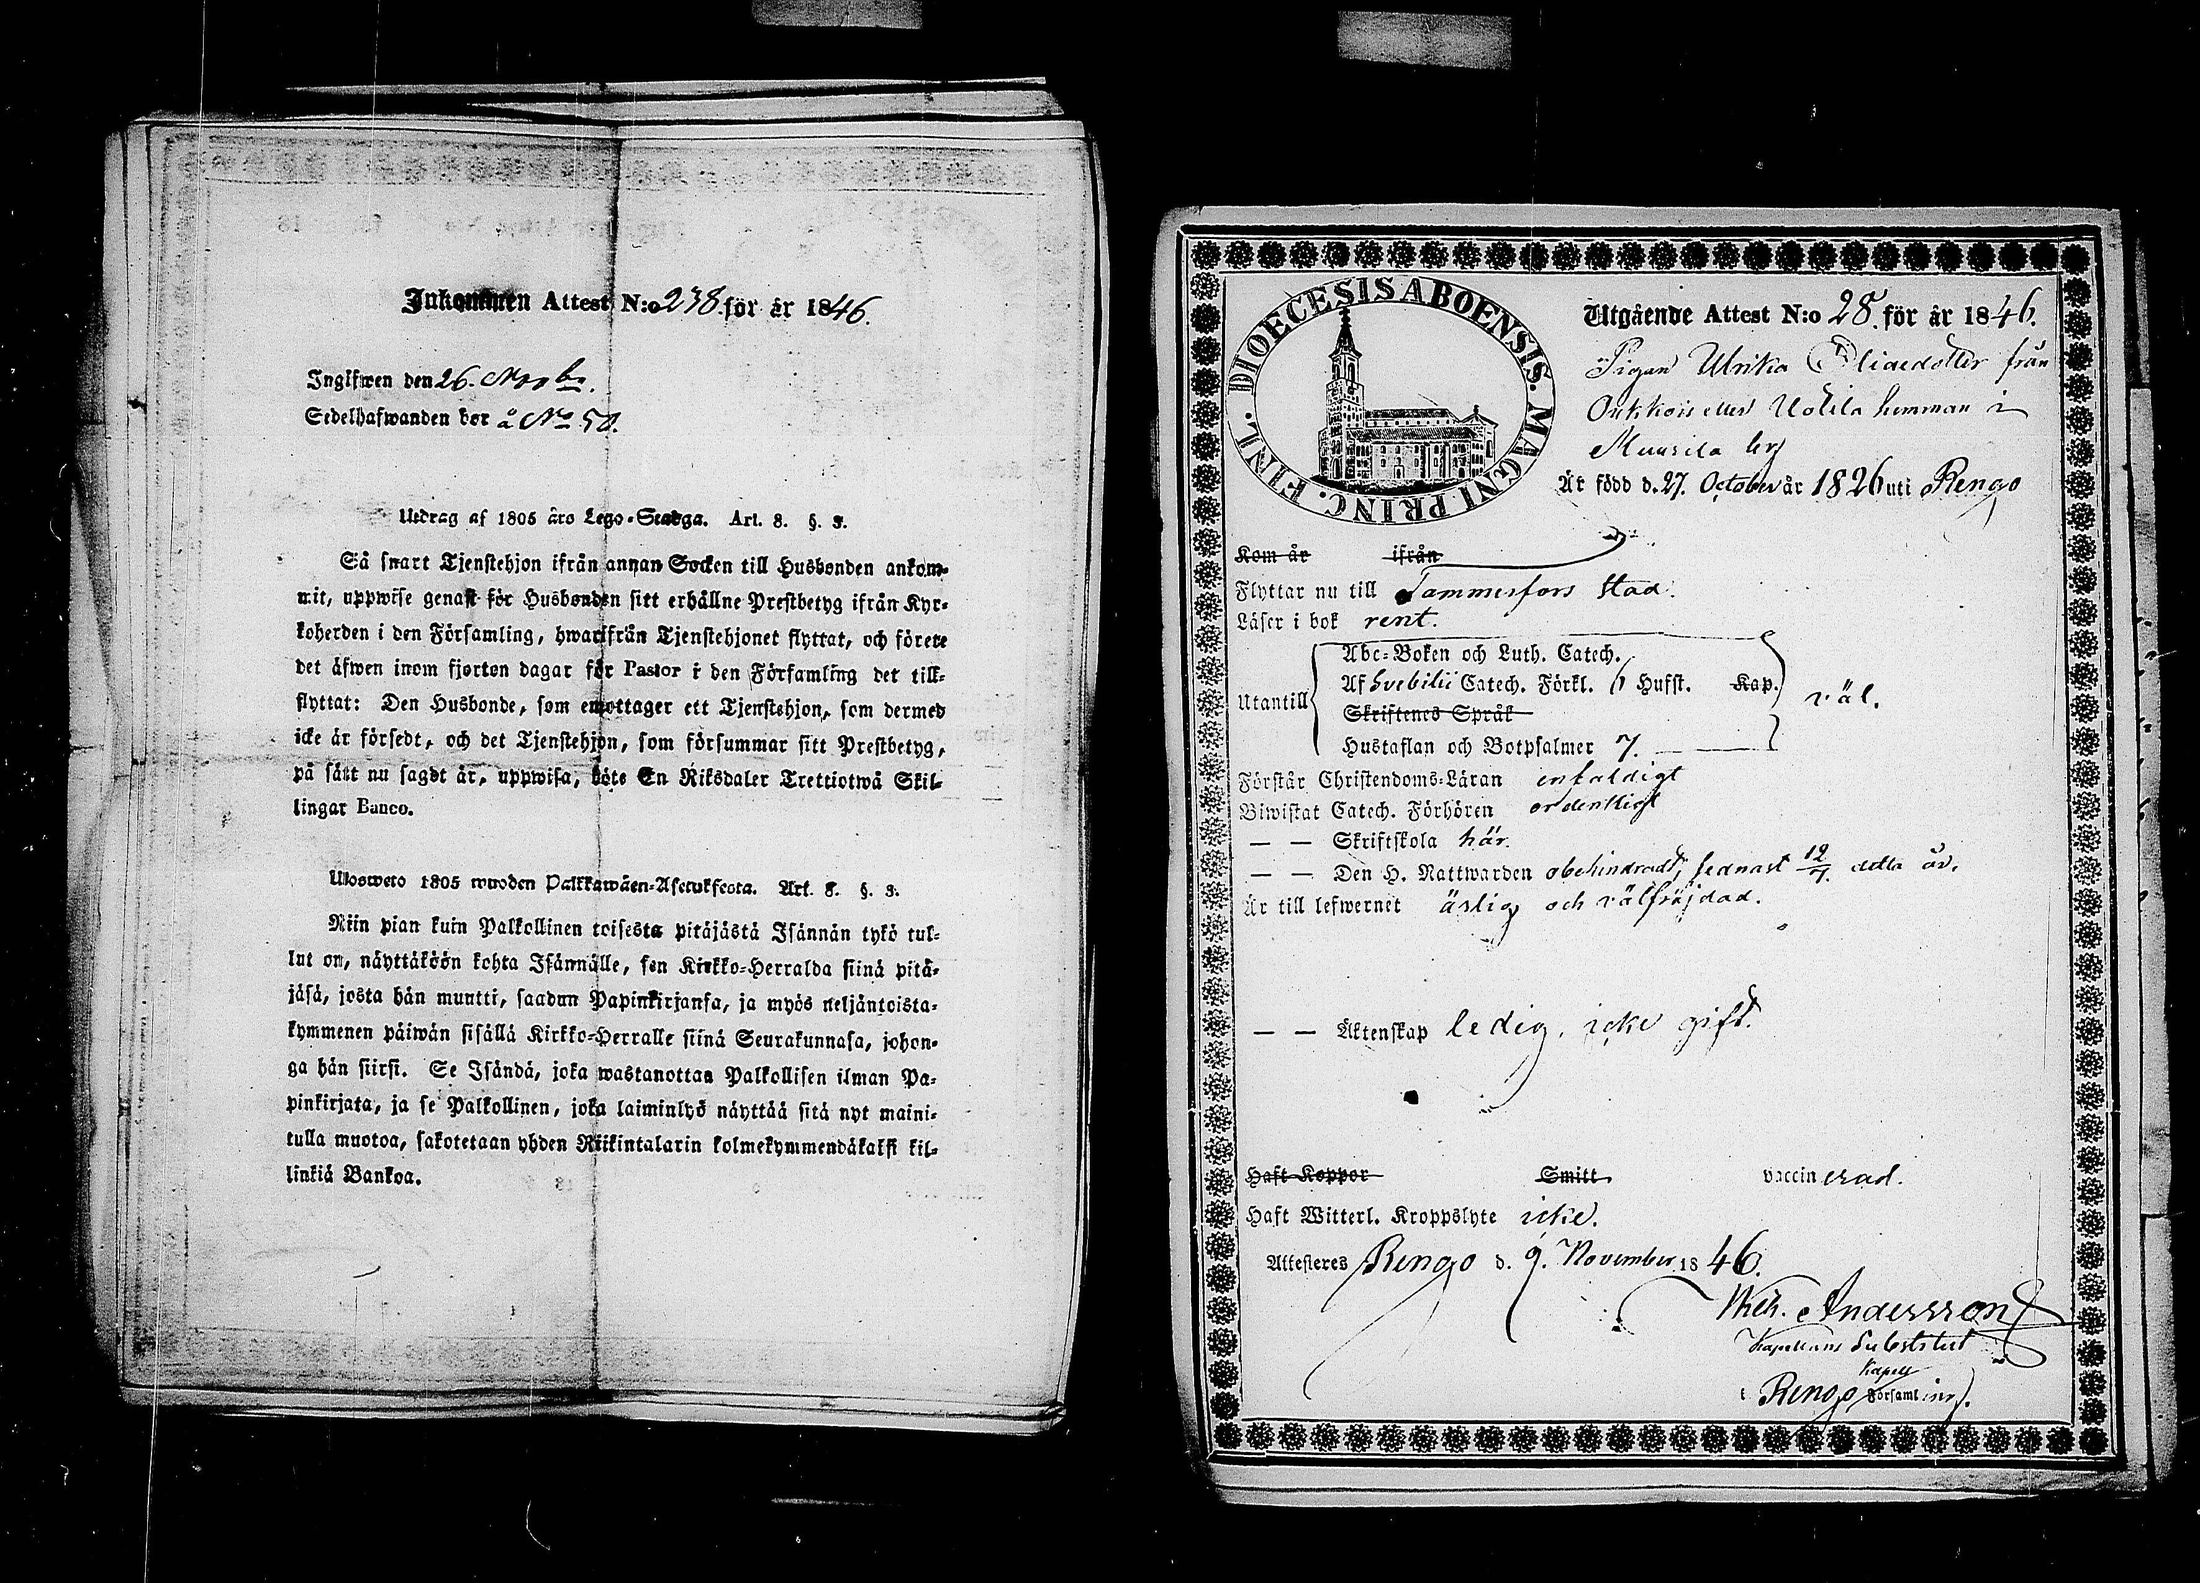 Inkommen Attest N:o 238. för år 1846.
Ingifwen den 26. Novbr.
Sedelhafwanden bor å No 50.
Utdrag af 1805 års Lego-Stadga. Art. 8. §. 3.
Så snart Tjenstehjon ifrån annan Socken till Husbonden ankom-
mit, uppwise genast för Husbonden sitt erhållne Prestbetyg ifrån Kyr-
koherden i den Församling, hwarifrån Tjenstehjonet flyttat, och förete
det äfwen inom fjorton dagar för Pastor i den Församling det till-
flyttat: Den Husbonde, som emottager ett Tjenstehjon, som dermed
icke är försedt, och det Tjenstehjon, som försummar sitt Prestbetyg,
på sätt nu sagdt är, uppwisa, böte En Riksdaler Trettiotwå Skil-
lingar Banco.
Ulosweto 1805 wuoden Palkkawäen-Asetuksesta. Art. 8. §. 3.
Niin pian kuin Palkollinen toisesta pitäjästä Isännän tykö tul-
lut on, näyttäköön kohta Isännälle, sen Kirkko-Herralda siinä pitä-
jäsä, josta hän muutti, saadun Papinkirjansa, ja myös neljäntoista-
kymmenen päiwän sisällä Kirkko-Herralle siinä Seurakunnasa, johon-
ga hän siirsi. Se Isändä, joka wastanottaa Palkollisen ilman Pa-
pinkirjata, ja se Palkollinen, joka laiminlyö näyttää sitä nyt maini-
tulla muotoa, sakotetaan yhden Riikintalarin kolmekymmendäkaksi kil-
linkiä Bankoa.
DIOECESIS ABOENSIS. MAGNI PRINC. FINL.
Utgående Attest N:o 28. för år 1846.
Pigan Ulrika Eliaedotter från
Oukkois eller Uotila hemman i
Muurila by
Är född d. 27. October år 1826 uti Rengo
Kom år ifrån
Flyttar nu till Tammerfors stad.
Läser i bok rent.
Abc-Boken och Luth. Catech.
Af Svebilii Catech. Förkl. Hufst. Kap.
Utantill väl.
Skriftenes Språk
Hustaflan och Botpsalmer 7.
Förstår Christendoms-Läran enfaldigt
Biwistat Catech. Förhören ordentligt
— — Skriftskola här.
— — Den H. Nattwarden obehindradt, sednast 12/7. detta år.
Är till lefwernet ärlig och välfräjdad.
— — Äktenskap ledig, icke gift.
Haft Koppor Smitt vaccinerad.
Haft Witterl. Kroppslyte icke.
Attesteras Rengo d. 9. November 1846.
Andersson
Kapellans Substitut
Kapell
i Rengo Församling.